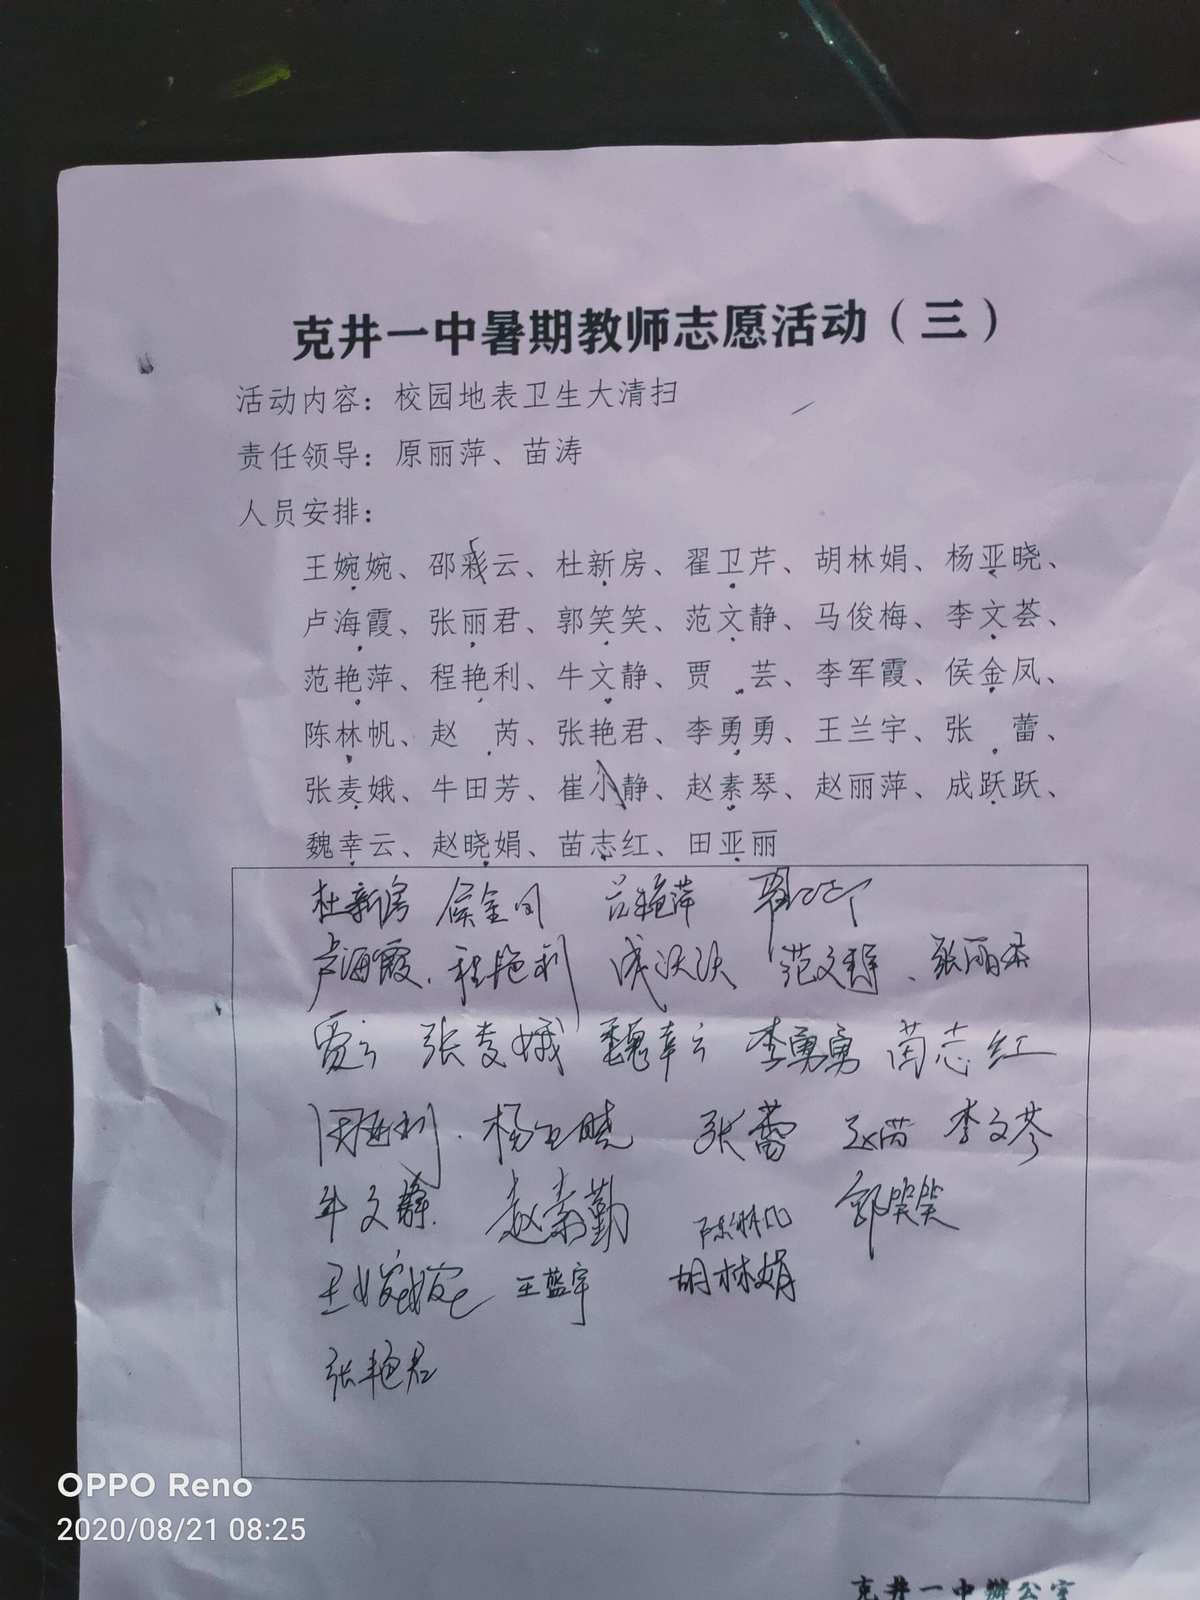 克井一中暑期教师志愿活动（三）
活动内容：校园地表卫生大清扫
责任领导：原丽萍、苗涛
人员安排：
王婉婉、邵彩云、杜新房、翟卫芹、胡林娟、杨亚晓、
卢海霞、张丽君、郭笑笑、范文静、马俊梅、李文荟、
范艳萍、程艳利、牛文静、贾　芸、李军霞、侯金凤、
陈林帆、赵　芮、张艳君、李勇勇、王兰宇、张　蕾、
张麦娥、牛田芳、崔小静、赵素琴、赵丽萍、成跃跃、
魏幸云、赵晓娟、苗志红、田亚丽
杜新房 侯金凤 范艳萍
卢海霞、程艳利 成跃跃 范文静、张丽君
贾云 张麦娥 魏幸云 李勇勇 苗志红
杨亚晓 张蕾 赵芮 李文荟
牛文静 赵素勤 陈林帆 郭笑笑
王婉婉 王蓝宇 胡林娟
张艳君
克井一中办公室
OPPO Reno
2020/08/21 08:25